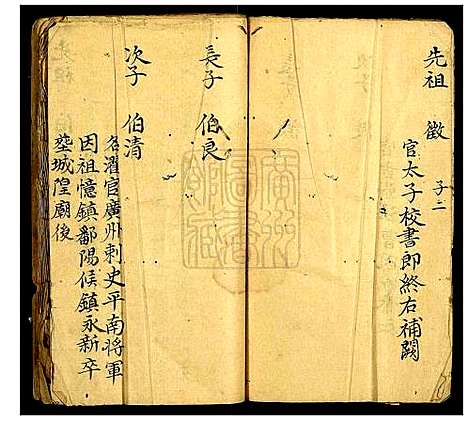 先祖 徵 子二
官太子校書郎終右補闕
長子 伯良
次子 伯清
名濯官廣州刺史平南將軍
因祖憶鎮鄱陽候鎮永新卒
塟城隍廟後